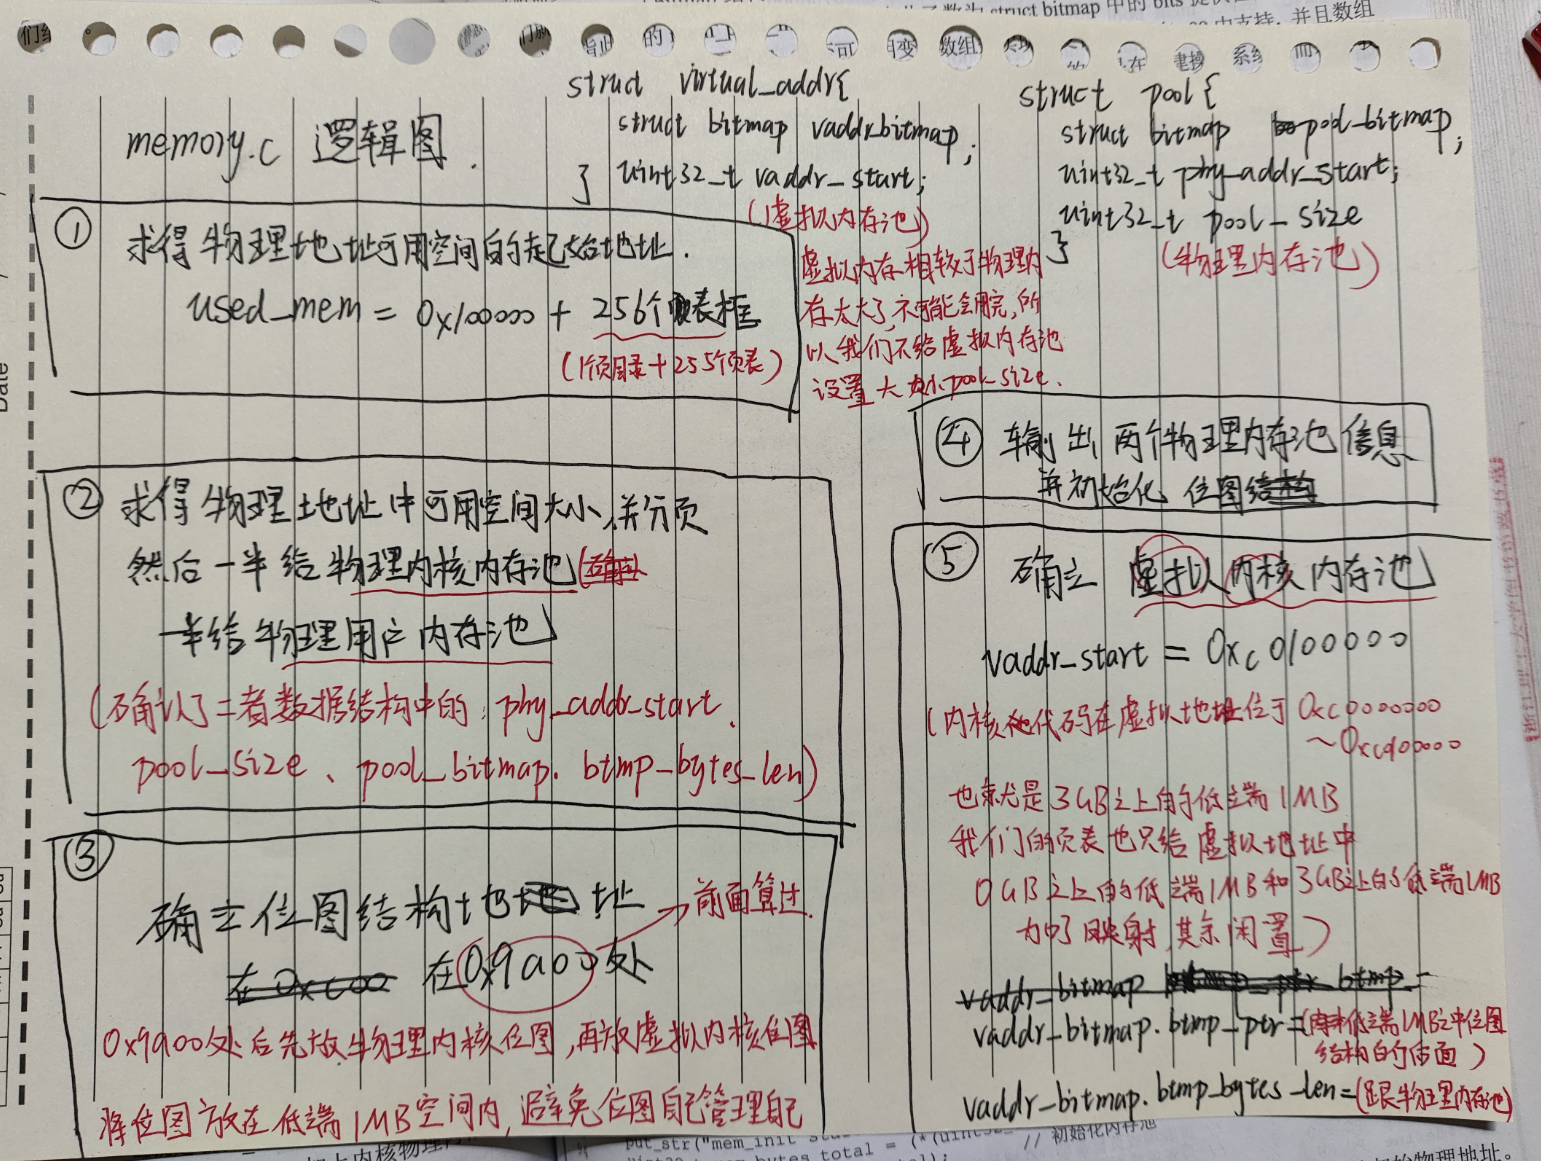 memory.c 逻辑图.
struct virtual_addr{
struct bitmap vaddr_bitmap;
uint32_t vaddr_start;
}
(虚拟内存池)
虚拟内存相较于物理内
存太大了,不可能会用完,所
以我们不给虚拟内存池
设置大小pool_size.
struct pool{
struct bitmap pool_bitmap;
uint32_t phy_addr_start;
uint32_t pool_size
}
(物理内存池)
① 求得物理地址可用空间的起始地址.
used_mem = 0x100000 + 256个页表框
(1个页目录+255个页表)
② 求得物理地址中可用空间大小,并分页
然后一半给物理内核内存池
一半给物理用户内存池
(确认了二者数据结构中的: phy_addr_start、
pool_size、pool_bitmap. btmp_bytes_len)
③
确立位图结构地址
在0x9a00处
前面算过.
0x9a00处后先放物理内核位图,再放虚拟内核位图
将位图放在低端1MB空间内,避免位图自己管理自己
④ 输出两个物理内存池信息
并初始化 位图
⑤ 确立 虚拟内核内存池
vaddr_start = 0xc0100000
(内核代码在虚拟地址位于0xc0000000
~0xc0100000
也就是3GB之上的低端1MB
我们的页表也只给虚拟地址中
0GB之上的低端1MB和3GB之上的低端1MB
力中了映射,其余闲置)
vaddr_bitmap.btmp_ptr=(低端1MB之中位图
结构的后面)
vaddr_bitmap.btmp_bytes_len=(跟物理内存池)
put_str("mem_init
// 初始化内存池
Date